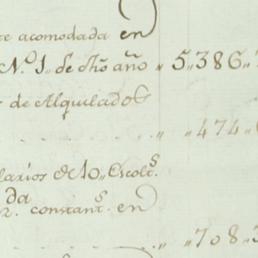 te acomodada en
N.º 1,, de dho año ,, 5,,386,,
s de Alquilados
. . . . ,, ,,474,,
larios de 10,, Escolt.s
da
2. constant.s en
. . . . ,, ,,708,,3